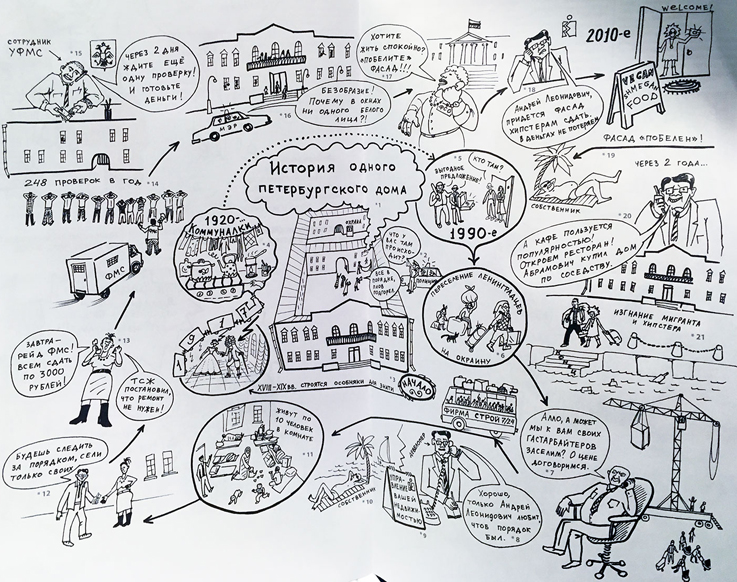 СОТРУДНИК
УФМС
*15
ЧЕРЕЗ 2 ДНЯ
ЖДИТЕ ЕЩЁ
ОДНУ ПРОВЕРКУ!
И ГОТОВЬТЕ
ДЕНЬГИ!
МЭР
*16
БЕЗОБРАЗИЕ!
ПОЧЕМУ В ОКНАХ
НИ ОДНОГО БЕЛОГО
ЛИЦА?!
ХОТИТЕ
ЖИТЬ СПОКОЙНО?
«ПОБЕЛИТЕ»
ФАСАД!!!
*17
*18
АНДРЕЙ ЛЕОНИДОВИЧ,
ПРИДЕТСЯ ФАСАД
ХИПСТЕРАМ СДАТЬ.
В ДЕНЬГАХ НЕ ПОТЕРЯЕМ.
2010-е
WELCOME!
VEGAN
OMEGAN
FOOD
ФАСАД «ПОБЕЛЕН»!
*19
СОБСТВЕННИК
ЧЕРЕЗ 2 ГОДА...
*20
А КАФЕ ПОЛЬЗУЕТСЯ
ПОПУЛЯРНОСТЬЮ!
ОТКРОЕМ РЕСТОРАН!
АБРАМОВИЧ КУПИЛ ДОМ
ПО СОСЕДСТВУ.
ИЗГНАНИЕ МИГРАНТА
И ХИПСТЕРА
*21
248 ПРОВЕРОК В ГОД
*14
ФМС
История одного
петербургского дома
*1
1920-е
КОММУНАЛКИ
*4
1917
ОХРАНА
ЧТО У
ВАС ТАМ
ПРОИСХО-
ДИТ?
ВСЁ В
ПОРЯДКЕ,
ПЛОВ
ПОДГОРЕЛ
ПОЛИЦИЯ
*5
ВЫГОДНОЕ
ПРЕДЛОЖЕНИЕ!
КТО ТАМ?
1990-е
ПЕРЕСЕЛЕНИЕ ЛЕНИНГРАДЦЕВ
НА ОКРАИНУ
*6
XVIII-XIX вв. СТРОЯТСЯ ОСОБНЯКИ ДЛЯ ЗНАТИ
НАЧАЛО
ФИРМА СТРОЙ 7/24
АЛЛО, А МОЖЕТ
МЫ К ВАМ СВОИХ
ГАСТАРБАЙТЕРОВ
ЗАСЕЛИМ? О ЦЕНЕ
ДОГОВОРИМСЯ.
*7
ХОРОШО,
ТОЛЬКО АНДРЕЙ
ЛЕОНИДОВИЧ ЛЮБИТ,
ЧТОБ ПОРЯДОК
БЫЛ.
*8
УПРАВЛЕНИЕ
ВАШЕЙ
НЕДВИЖИ-
МОСТЬЮ
*9
СОБСТВЕННИК
*10
ЖИВУТ ПО
10 ЧЕЛОВЕК
В КОМНАТЕ
*11
БУДЕШЬ СЛЕДИТЬ
ЗА ПОРЯДКОМ, СЕЛИ
ТОЛЬКО СВОИХ
*12
ЗАВТРА-
РЕЙД ФМС!
ВСЕМ СДАТЬ
ПО 3000
РУБЛЕЙ!
*13
ТСЖ
ПОСТАНОВИЛ,
ЧТО РЕМОНТ
НЕ НУЖЕН!